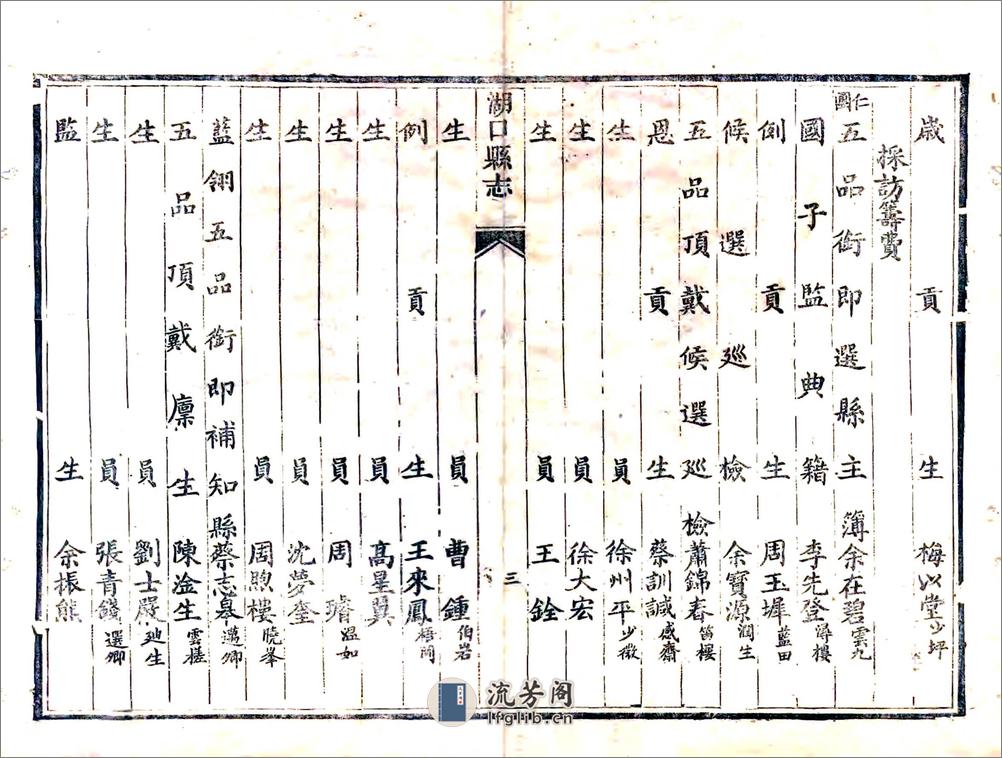 歲貢生梅以堂少坪
採訪籌費
五品銜即選縣主簿余在碧雲九
國子監典籍李先登潯樓
例貢生周玉墀藍田
候選巡檢余寶源潤生
五品頂戴候選巡檢蕭錦春笛樓
恩貢生蔡訓誠感齋
生員徐州平少微
生員徐大宏
生員王銓
湖口縣志
三
生員曹鍾伯岩
例貢生王來鳳梧岡
生員高星翼
生員周璿溫如
生員沈夢奎
生員周煦樓曉峯
藍翎五品銜即補知縣蔡志皋邁卿
五品頂戴廩生陳淦生雲槎
生員劉士嚴廸生
生員張青錢選卿
監生余振熊
流芳阁
lfglib.cn